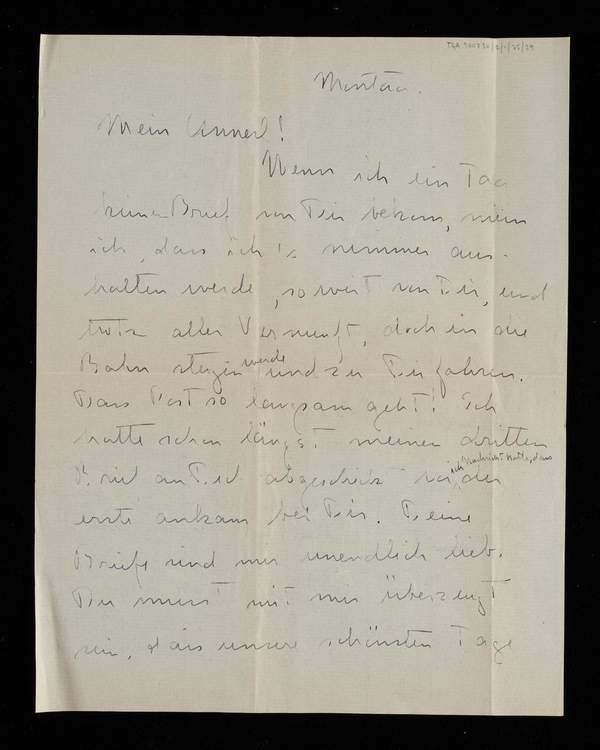 Montag.
Mein Annerl!
Wenn ich ein Tag
keinen Brief von Dir bekam, mein
ich, dass ich's nimmer aus-
halten werde, so weit von Dir, und
trotz aller Vernunft, doch in die
Bahn steigen werde und zu Dir fahren.
Dass Post so langsam geht! Ich
hatte schon längst meinen dritten
Brief an Dich abgeschickt
ich Nachricht hatte, dass
der
erste ankam bei Dir. Deine
Briefe sind mir unendlich lieb.
Du musst mit mir überzeugt
sein, dass unsere schönsten Tage